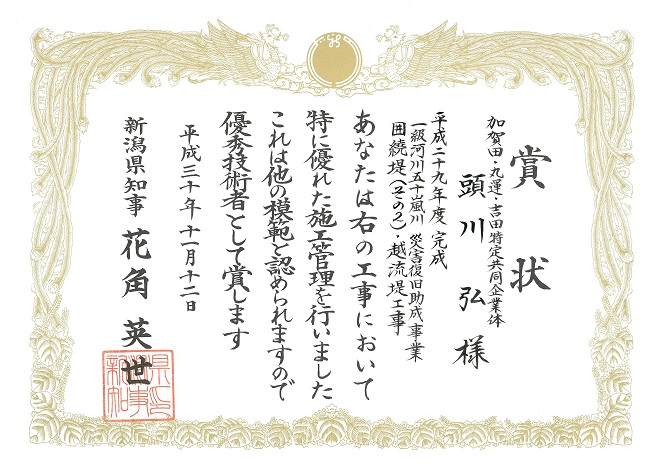 賞状
加賀田・丸運・吉田特定共同企業体
頭川弘様
平成二十九年度 完成
一級河川五十嵐川 災害復旧助成事業
囲繞堤(その2)・越流堤工事
あなたは右の工事において
特に優れた施工管理を行いました
これは他の模範と認められますので
優秀技術者として賞します
平成三十年十一月十二日
新潟県知事 花角英世